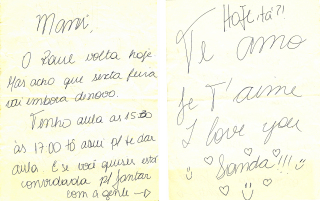 Mami,
O Raue volta hoje.
Mas acho que sexta feira
vai embora dinovo.
Tenho aula as 15:30
às 17:00 tô aqui p/ te dar
aula. E se você quiser está
convidada p/ jantar
com a gente →
Hoje tá?!
Te amo
Je T'aime
I love you
Sanda!!!